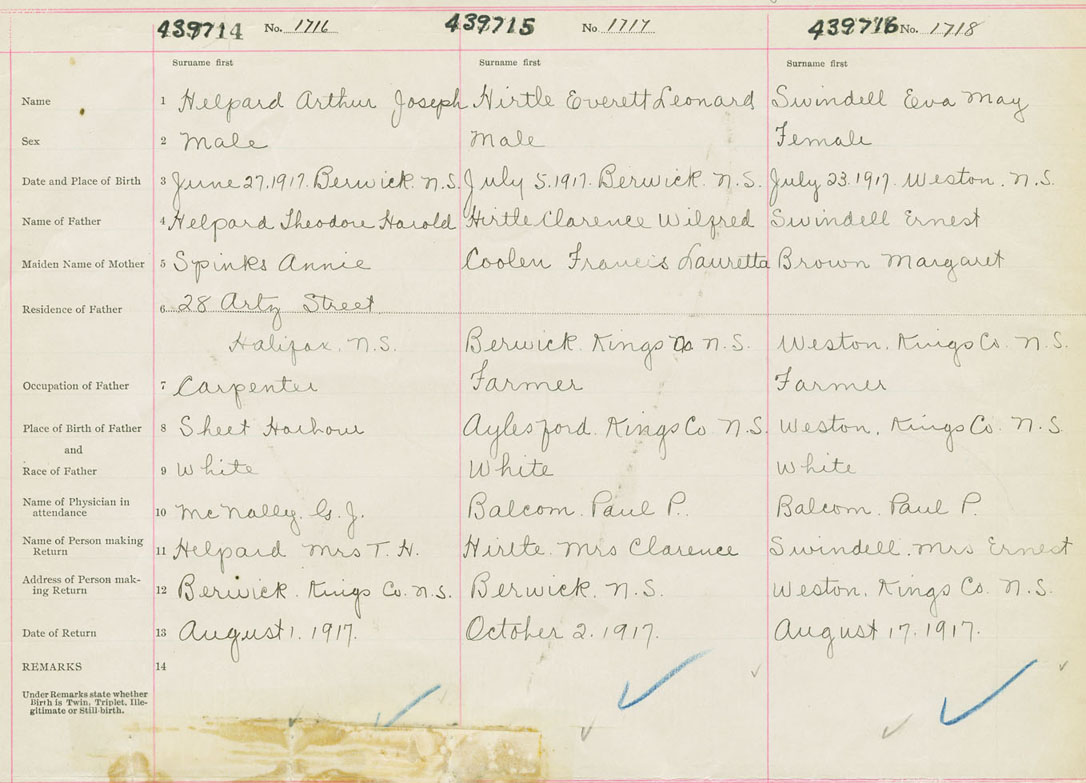 439714 No. 1716 439715 No 1717 439716 No. 1718
Surname first Surname first Surname first
Name 1 Helpard Arthur Joseph Hirtle Everett Leonard Swindell Eva May
Sex 2 Male Male Female
Date and Place of Birth 3 June 27, 1917. Berwick. N.S. July 5. 1917. Berwick. N.S. July 23. 1917. Weston. N.S.
Name of Father 4 Helpard Theodore Harold Hirtle Clarence Wilfred Swindell Ernest
Maiden Name of Mother 5 Spinks Annie Coolen Francis Lauretta Brown Margaret
Residence of Father 6 28 Artz Street
Halifax. N.S. Berwick. Kings Co N.S. Weston. Kings Co. N.S.
Occupation of Father 7 Carpenter Farmer Farmer
Place of Birth of Father 8 Sheet Harbour Aylesford. Kings Co N.S. Weston. Kings Co. N.S.
and
Race of Father 9 White White White
Name of Physician in
attendance 10 McNally. G. J. Balcom. Paul P. Balcom. Paul P.
Name of Person making
Return 11 Helpard Mrs T. H. Hirtle. Mrs Clarence Swindell. Mrs Ernest
Address of Person mak-
ing Return 12 Berwick. Kings Co. N.S. Berwick. N.S. Weston. Kings Co. N.S.
Date of Return 13 August 1. 1917. October 2. 1917. August 17. 1917.
REMARKS 14
Under Remarks state whether
Birth is Twin, Triplet, Ille-
gitimate or Still-birth.